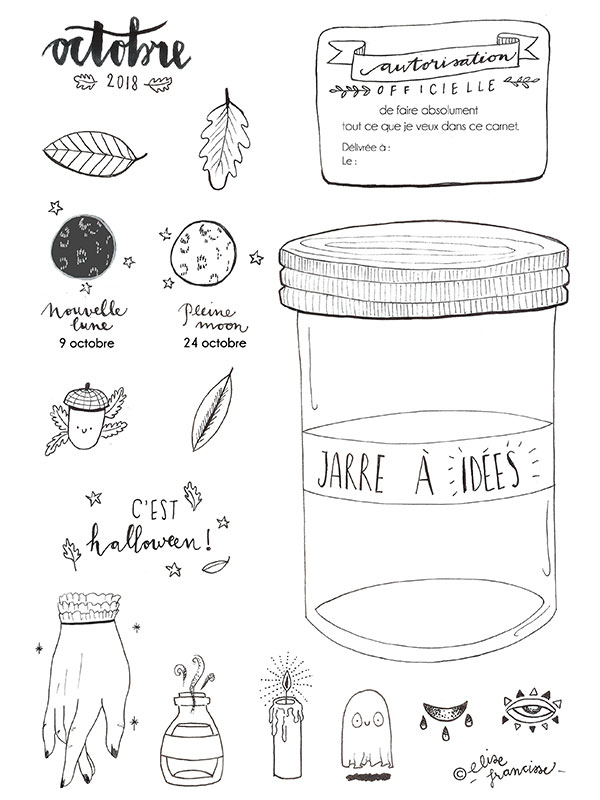 octobre
2018
autorisation
OFFICIELLE
de faire absolument
tout ce que je veux dans ce carnet.
Délivrée à :
Le :
Nouvelle
lune
9 octobre
Pleine
moon
24 octobre
JARRE À IDÉES
C'EST
halloween !
© elise
francisse